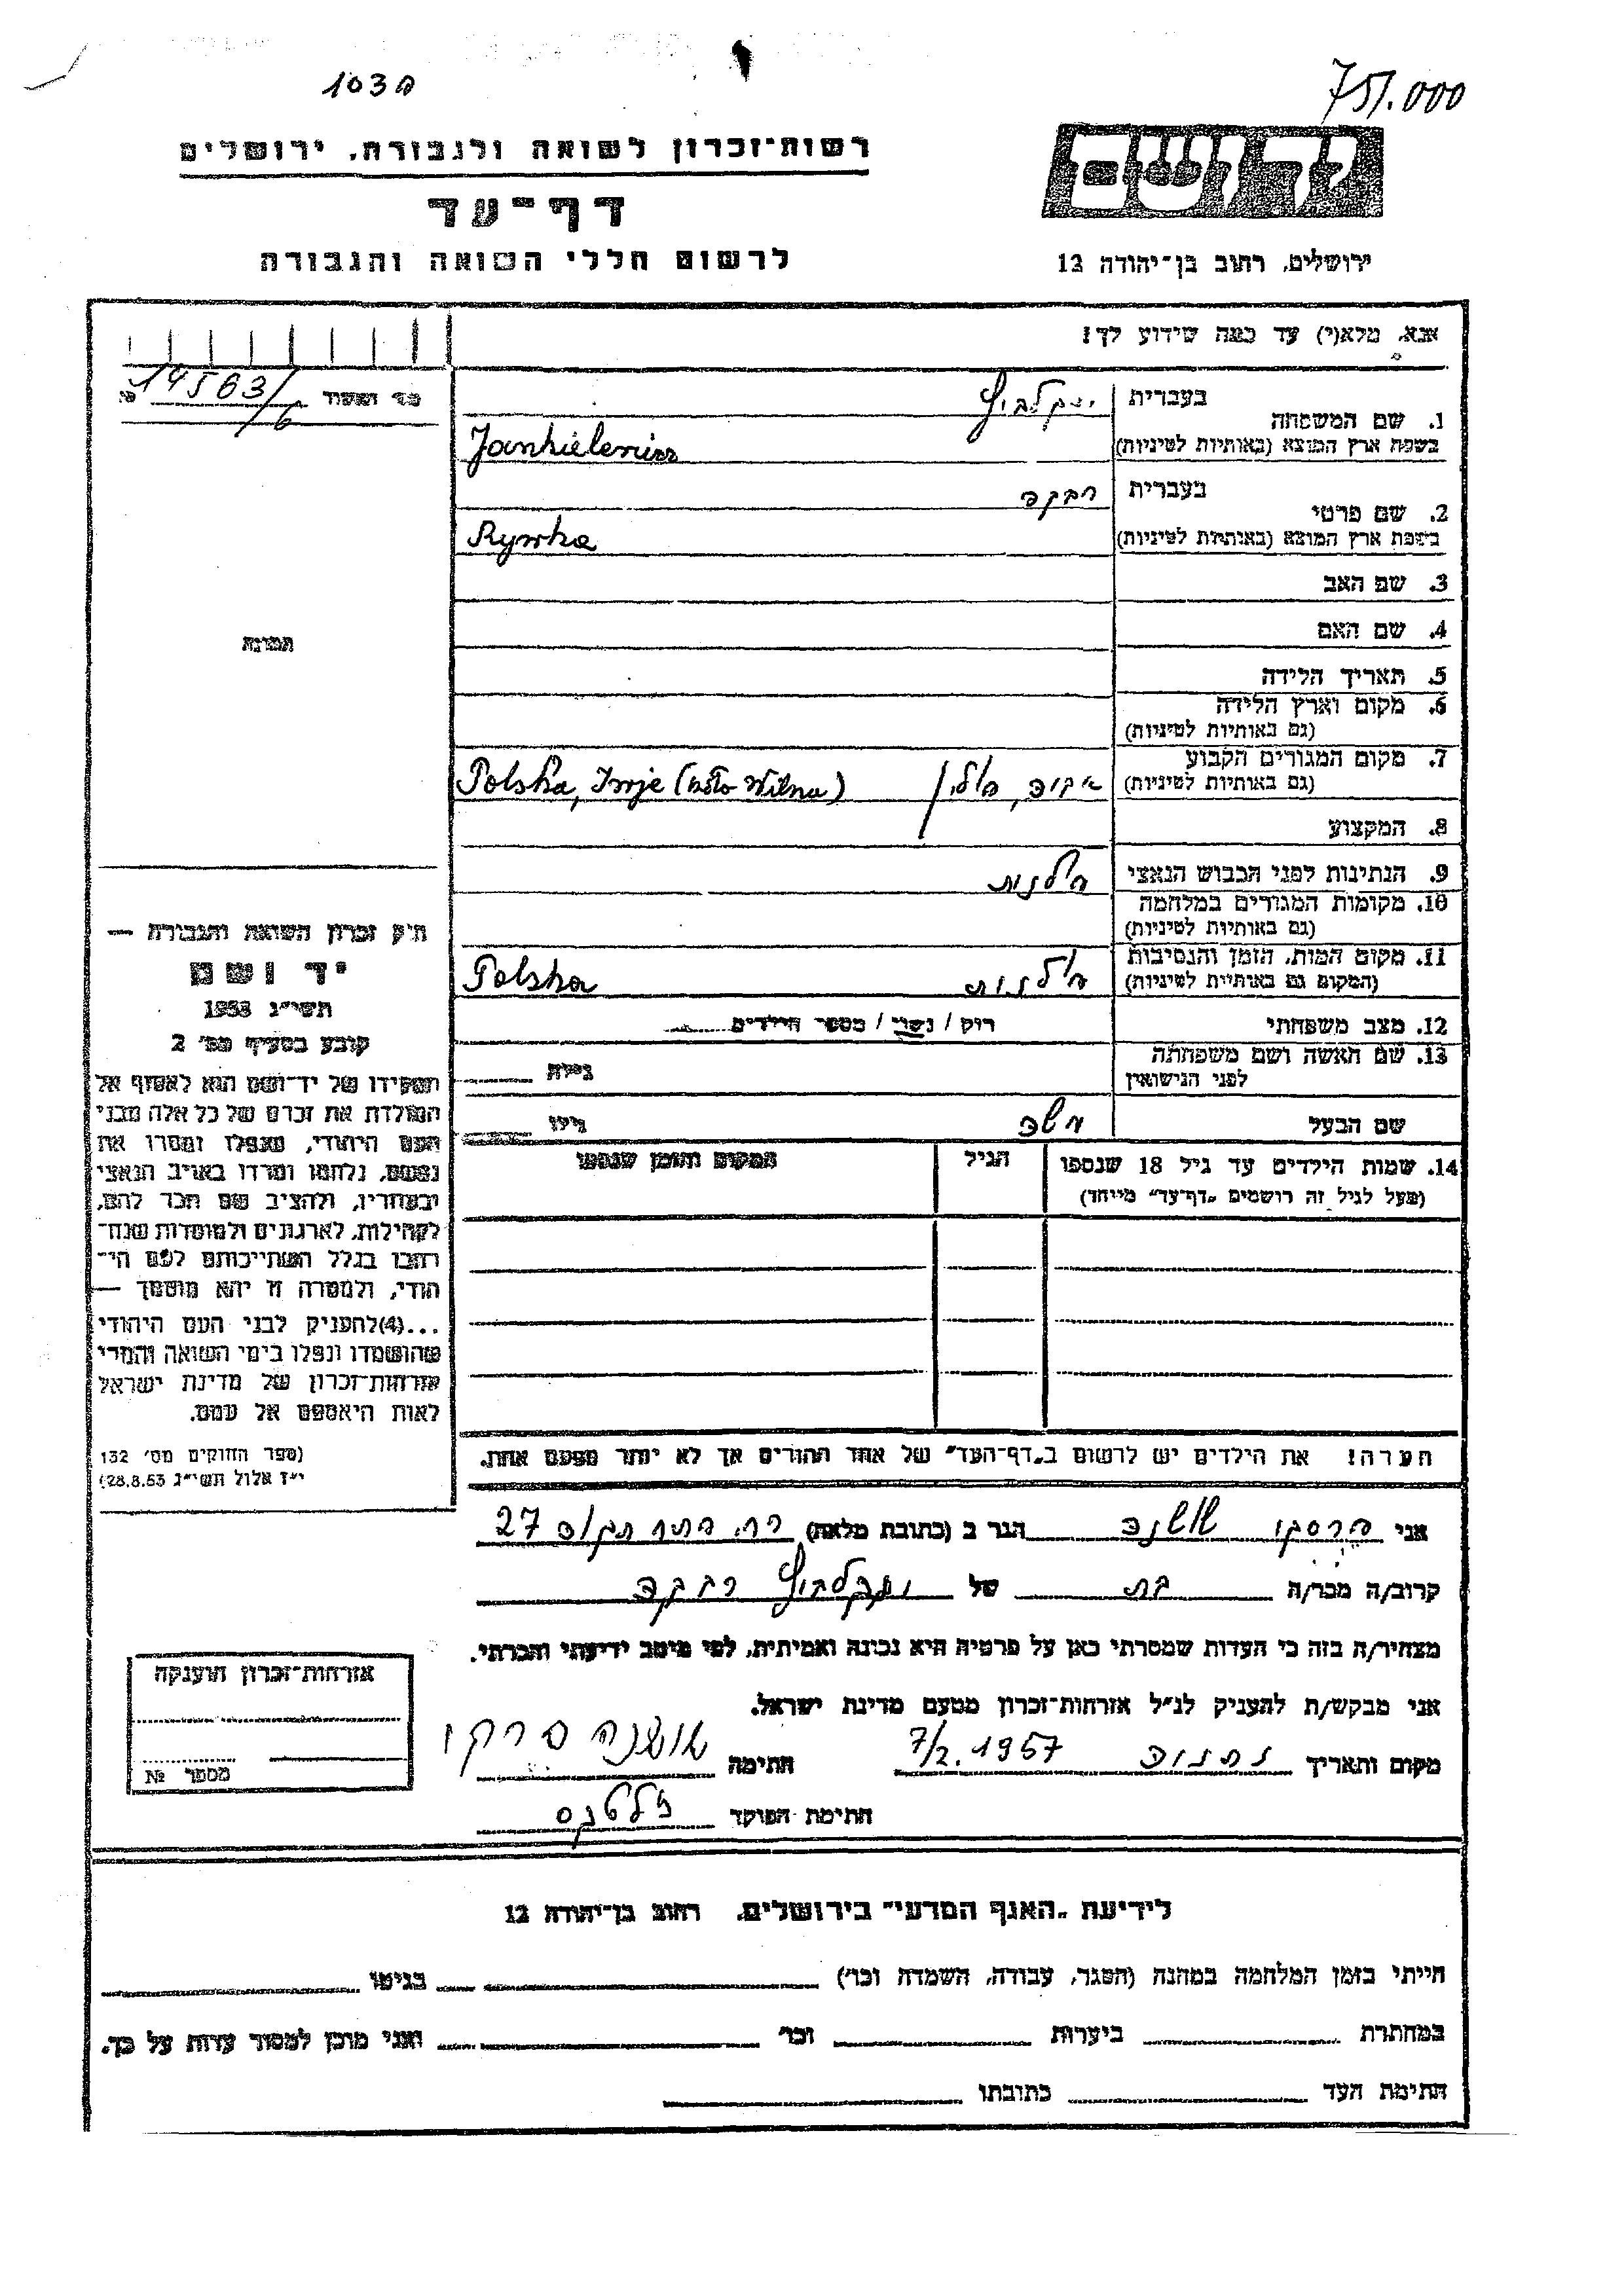 103
751.000
רשות־זכרון לשואה ולגבורה, ירושלים
דף־עד
לרשום חללי השואה והגבורה
יד ושם
ירושלים, רחוב בן־יהודה 12
אנא, מלא(י) עד כמה שידוע לך!
14563/6
1. שם המשפחה
בעברית
בשפת ארץ המוצא (באותיות לטיניות)
Jankielewicz
2. שם פרטי
בעברית רבקה
בשפת ארץ המוצא (באותיות לטיניות)
Rywka
3. שם האב
4. שם האם
5. תאריך הלידה
6. מקום וארץ הלידה
(גם באותיות לטיניות)
7. מקום המגורים הקבוע
(גם באותיות לטיניות)
Polska, Iwje (koło Wilna)
8. המקצוע
9. הנתינות לפני הכבוש הנאצי פולנית
10. מקומות המגורים במלחמה
(גם באותיות לטיניות)
11. מקום המות, הזמן והנסיבות
(המקום גם באותיות לטיניות)
Polska
12. מצב משפחתי רוק / נשוי / מספר הילדים
13. שם האשה ושם משפחתה
לפני הנישואין
גילה
שם הבעל משה
גילו
14. שמות הילדים עד גיל 18 שנספו
(מעל לגיל זה רושמים „דף־עד״ מיוחד)
הגיל
המקום והזמן שנספו
הערה! את הילדים יש לרשום ב„דף־העד״ של אחד ההורים אך לא יותר מפעם אחת.
תמונה
חוק זכרון השואה והגבורה —
יד ושם
תשי״ג 1953
קובע בסעיף מס׳ 2
תפקידו של יד־ושם הוא לאסוף אל
המולדת את זכרם של כל אלה מבני
העם היהודי, שנפלו ומסרו את
נפשם, נלחמו ומרדו באויב הנאצי
ובעוזריו, ולהציב שם וזכר להם,
לקהילות, לארגונים ולמוסדות שנח־
רבו בגלל השתייכותם לעם הי־
הודי, ולמטרה זו יהא מוסמך —
...(4)להעניק לבני העם היהודי
שהושמדו ונפלו בימי השואה והמרי
אזרחות־זכרון של מדינת ישראל
לאות היאספם אל עמם.
(ספר החוקים מס׳ 132
י״ז אלול תשי״ג 28.8.53)
אני שושנה הגר ב (כתובת מלאה) 27
קרוב/ה מכר/ה בת של רבקה
מצהיר/ה בזה כי העדות שמסרתי כאן על פרטיה היא נכונה ואמיתית, לפי מיטב ידיעתי והכרתי.
אני מבקש/ת להעניק לנ״ל אזרחות־זכרון מטעם מדינת ישראל.
מקום ותאריך נתניה 7/2.1957 חתימה שושנה
חתימת הפוקד
אזרחות־זכרון הוענקה
מספר №
לידיעת „האגף המדעי״ בירושלים, רחוב בן־יהודה 12
הייתי בזמן המלחמה במחנה (הסגר, עבודה, השמדה וכו׳) בגיטו
במחתרת ביערות וכו׳ ואני מוכן למסור עדות על כך.
חתימת העד כתובתו